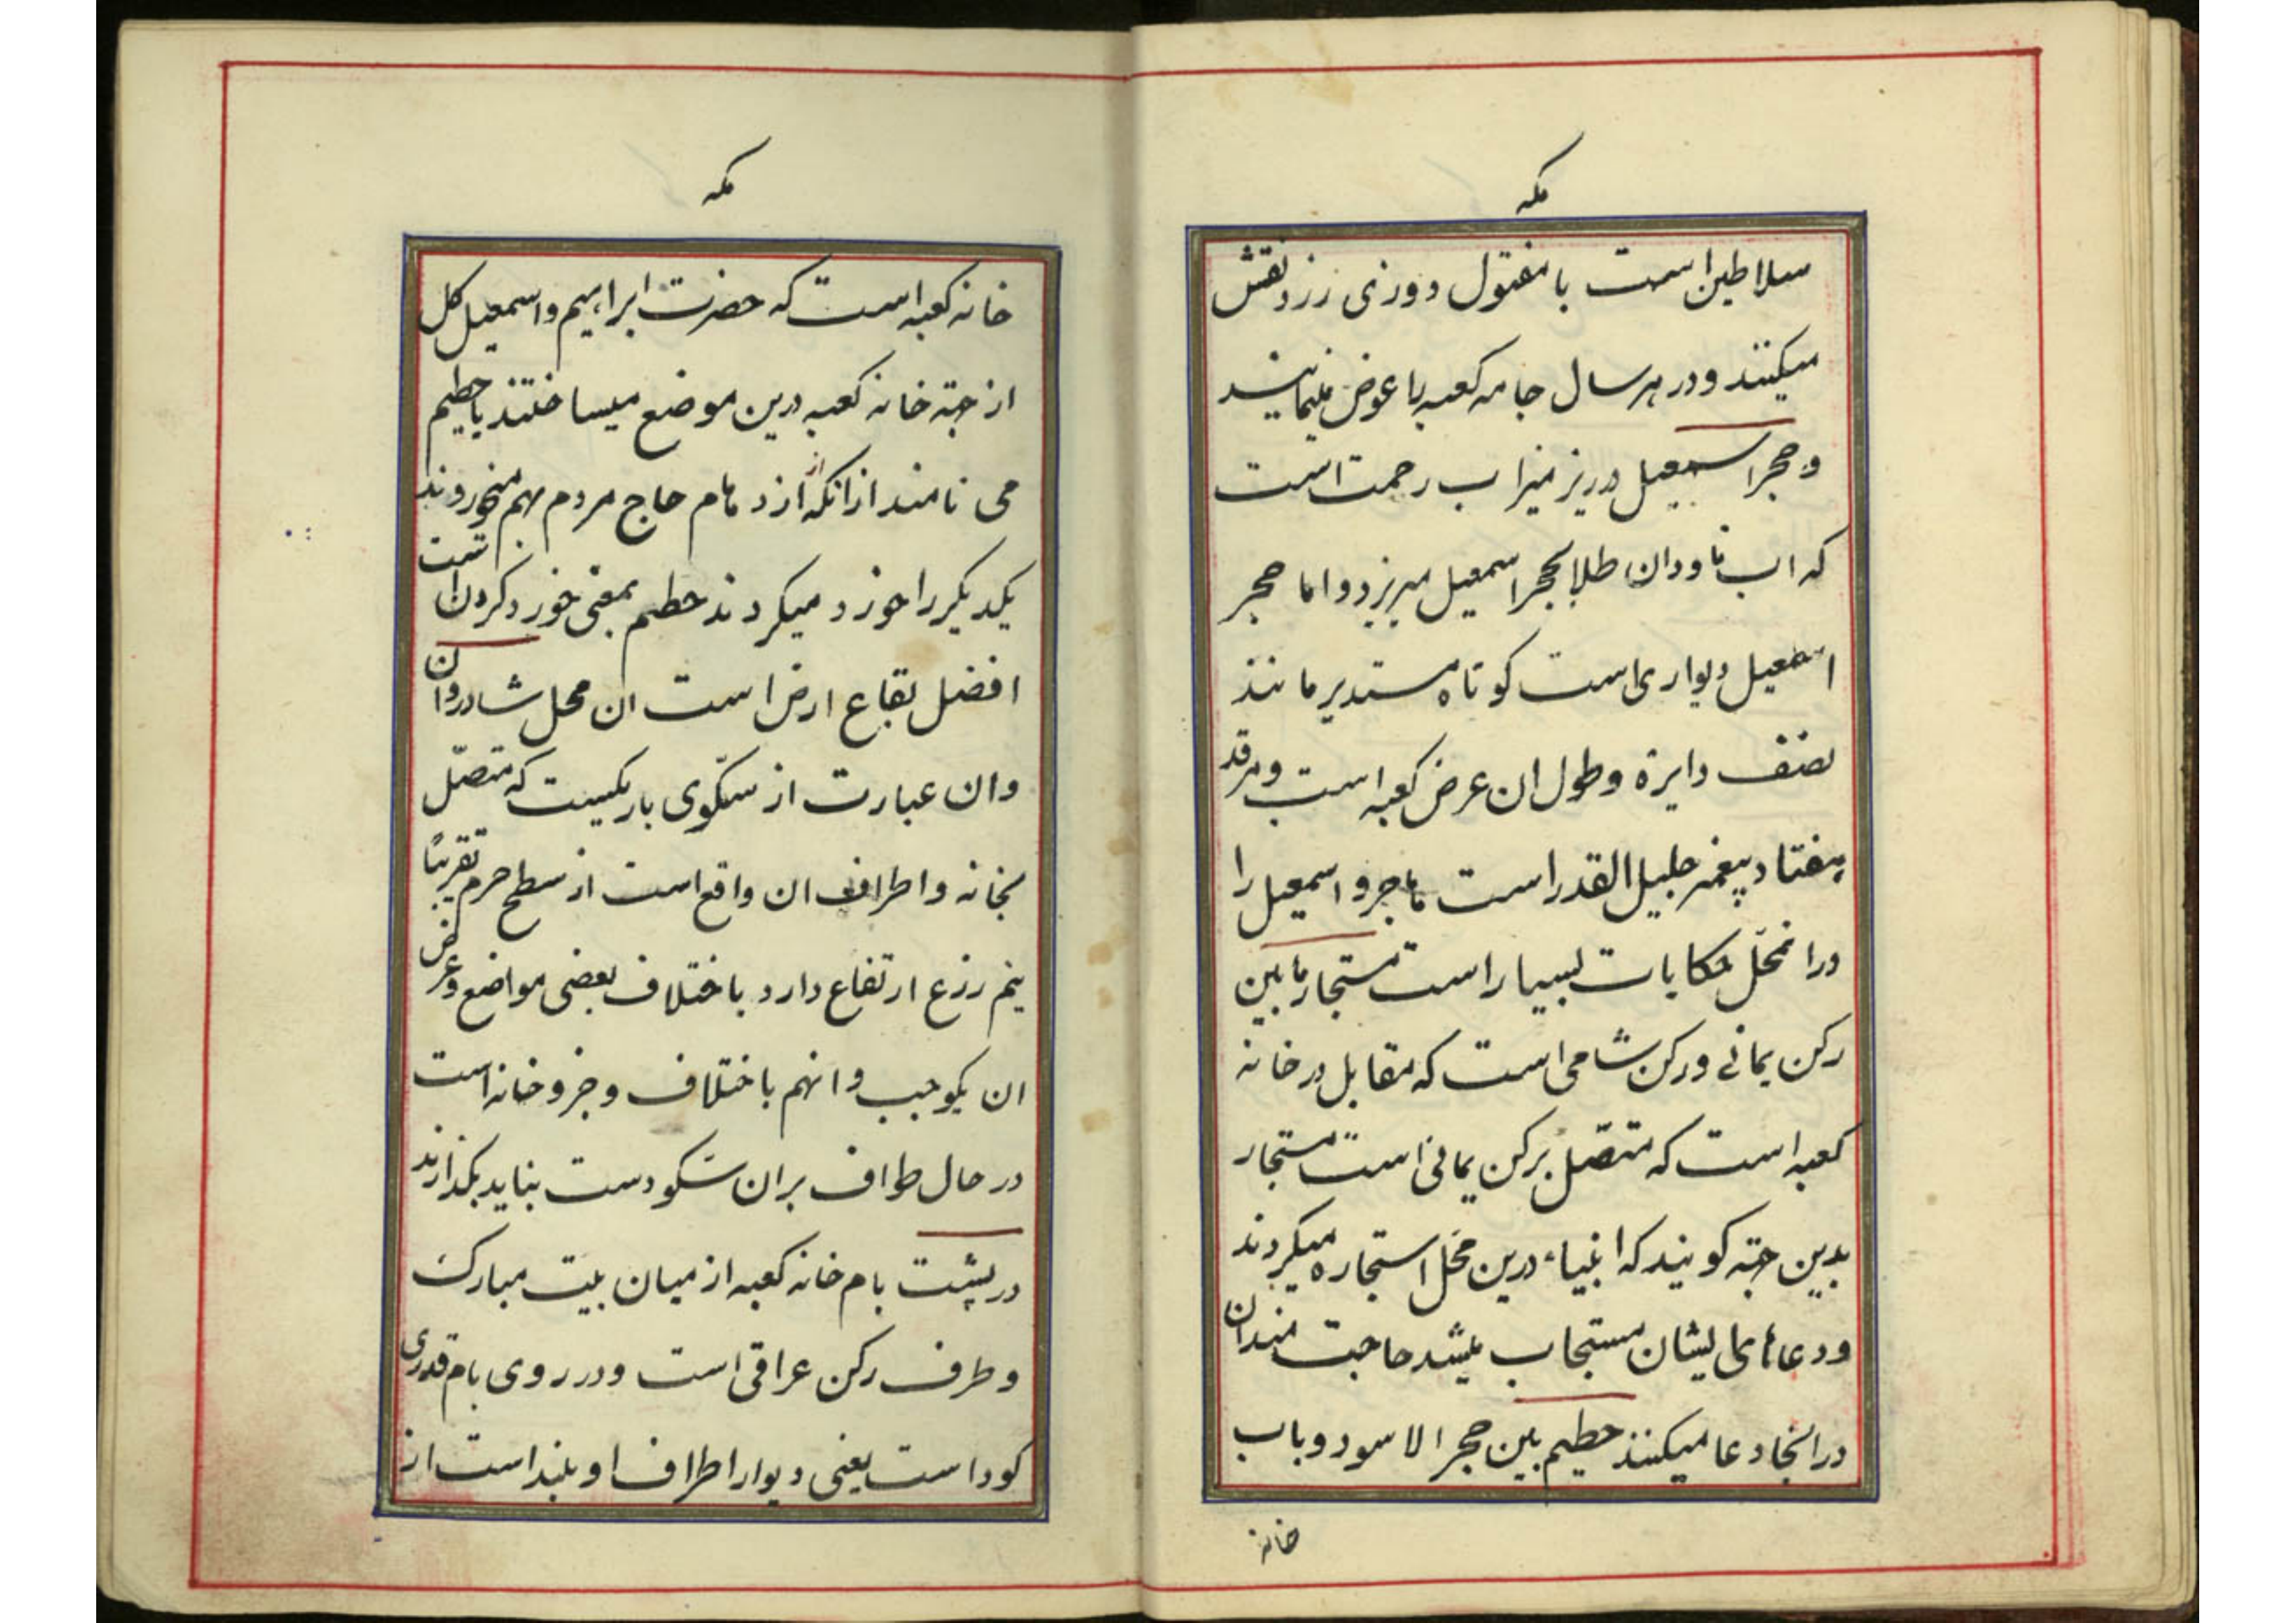 مکه
سلاطین است با مفتول دوزی زرد نقش
میکنند و در هر سال جامه کعبه را عوض مینمایند
و حجر اسمعیل در زیر میزاب رحمت است
که اب ناودان طلا بحجر اسمعیل میریزد و اما حجر
اسمعیل دیواری است کوتاه مستدیر مانند
نصف دایره و طول ان عرض کعبه است و مرقد
هفتاد پیغمبر جلیل القدر است هاجر و اسمعیل را
در انمحل حکایات بسیار است مستجار ما بین
رکن یمانی و رکن شامی است که مقابل در خانه
کعبه است که متصل برکن یمانی است مستجار
بدین جهته کویند که انبیاء درین محل استجاره میکردند
و دعاهای ایشان مستجاب میشد حاجت مندان
در انجا دعا میکنند حطیم بین حجر الاسود و باب
خانه
مکه
خانه کعبه است که حضرت ابراهیم و اسمعیل کل
از جهته خانه کعبه درین موضع میساختند یا حطیم
می نامند از انکه از ازدهام حاج مردم بهم میخوروند
یکدیکر را خورد میکردند حطیم بمعنی خورد کردن است
افضل بقاع ارض است ان محل شادروان
و ان عبارت از سکوی باریکیست که متصل
بخانه و اطراف ان واقع است از سطح حرم تقریبا
نیم زرع ارتفاع دارد باختلاف بعضی مواضع و عرض
ان یکوجب و انهم باختلاف و جزو خانه است
در حال طواف بران سکو دست نباید بکذارند
در پشت بام خانه کعبه از میان بیت مبارک
و طرف رکن عراقی است و در روی بام قدری
کود است یعنی دیوار اطراف او بلند است از